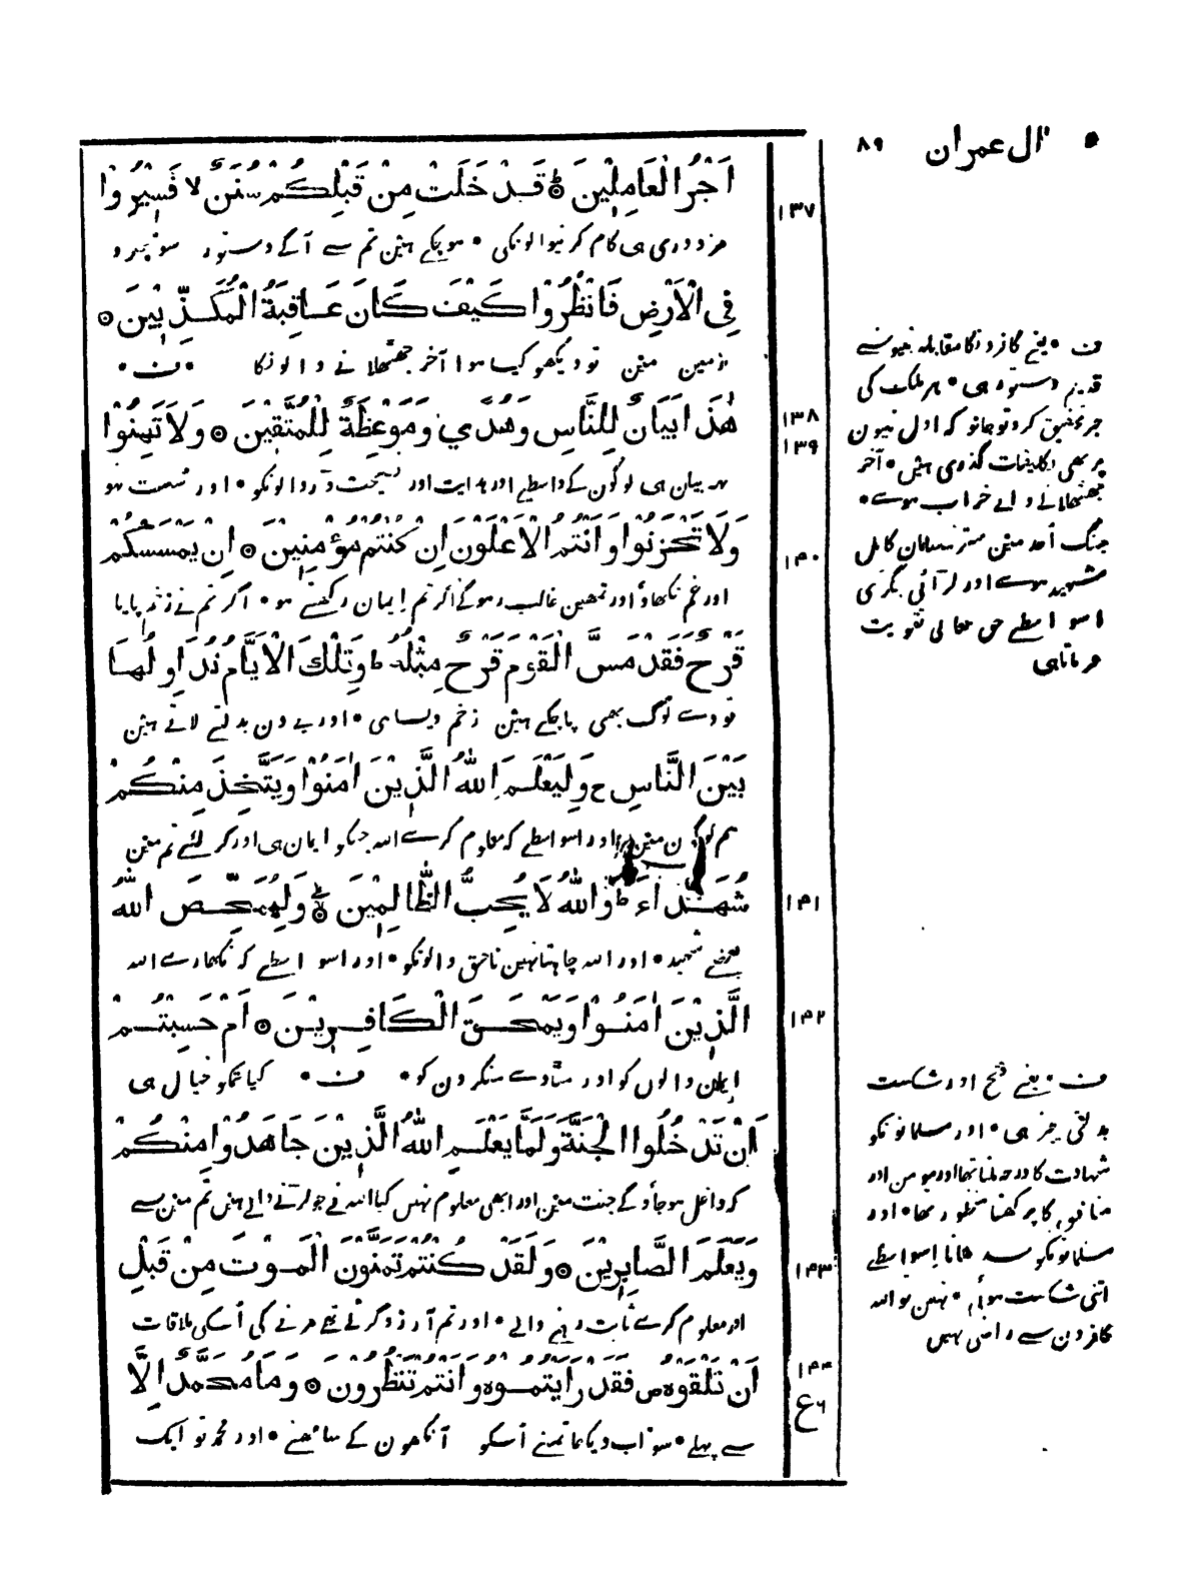 اٰل عمران ٨٩
اَجْرُ الْعَامِلِيْنَ ۞ قَدْ خَلَتْ مِنْ قَبْلِكُمْ سُنَنٌ لا فَسِيْرُوْا
١٣٧
مزدوری ہی کام کرنیوالونکی • ہوچکے ہین تم سے آگے دستور سو پھرو
فِي الْاَرْضِ فَانْظُرُوْا كَيْفَ كَانَ عَاقِبَةُ الْمُكَذِّبِيْنَ ۞
زمین مین تو دیکھو کیسا ہوا آخر جھٹھلانے والونکا • ف •
هٰذَا بَيَانٌ لِلنَّاسِ وَهُدًي وَمَوْعِظَةٌ لِلْمُتَّقِيْنَ ۞ وَلَا تَهِنُوْا
١٣٨
١٣٩
یہ بیان ہی لوگون کے واسطے اور ہدایت اور نصیحت ڈر والونکو • اور سُست ہو
وَلَا تَحْزَنُوْا وَاَنْتُمُ الْاَعْلَوْنَ اِنْ كُنْتُمْ مُؤْمِنِيْنَ ۞ اِنْ يَمْسَسْكُمْ
١٤٠
اور غم نکھاؤ اور تمھین غالب رہوگے اگر تم اِیمان رکھتے ہو • اگر تم نے زخم پایا
قَرْحٌ فَقَدْ مَسَّ الْقَوْمَ قَرْحٌ مِثْلُهُ ط وَتِلْكَ الْاَيَّامُ نُدَاوِلُهَا
تو وے لوگ بھی پاچکے ہین زخم ویسا ہی • اور یے دن بدلتے لاتے ہین
بَيْنَ النَّاسِ ج وَلِيَعْلَمَ اللهُ الَّذِيْنَ اٰمَنُوْا وَيَتَّخِذَ مِنْكُمْ
ہم لوگون مین اور اسواسطے کہ معلوم کرے اللہ جنکو ایمان ہی اور کرلئے تم مین
شُهَدَاءَ ط وَاللهُ لَا يُحِبُّ الظَّالِمِيْنَ ۞ وَلِيُمَحِّصَ اللهُ
١٤١
بعضے شہید • اور اللہ چاہتا نہین ناحق والونکو • اور اسواسطے کہ نکھارے اللہ
الَّذِيْنَ اٰمَنُوْا وَيَمْحَقَ الْكَافِرِيْنَ ۞ اَمْ حَسِبْتُمْ
١٤٢
اِیمان والون کو اور مٹاوے منکرون کو • ف • کیا تمکو خیال ہی
اَنْ تَدْخُلُوا الْجَنَّةَ وَلَمَّا يَعْلَمِ اللهُ الَّذِيْنَ جَاهَدُوْا مِنْكُمْ
کہ داخل ہوجاؤگے جنت مین اور ابھی معلوم نہین کیا اللہ نے جو لڑنے والے ہین تم مین سے
وَيَعْلَمَ الصَّابِرِيْنَ ۞ وَلَقَدْ كُنْتُمْ تَمَنَّوْنَ الْمَوْتَ مِنْ قَبْلِ
١٤٣
اور معلوم کرے ثابت رہنے والے • اور تم آرزو کرتے تھے مرنے کی اُسکی ملاقات
اَنْ تَلْقَوْهُ ص فَقَدْ رَاَيْتُمُوْهُ وَاَنْتُمْ تَنْظُرُوْنَ ۞ وَمَا مُحَمَّدٌ اِلَّا
١٤٤
ع ٦
سے پہلے • سو اب دیکھا تمنے اُسکو آنکھون کے سامھنے • اور محمد تو ایک
ف • یعنے کافرونکا مقابلہ نبیونسے
قدیم دستور ہی • ہر ملک کی
خبر تحقیق کرو تو جانو کہ اول نبیون
پر بھی تکلیفات گذری ہین • آخر
جھٹھلانے والے خراب ہوے •
جنگ اُحد مین ستر مسلمان کامل
شہید ہوے اور لڑائی بگڑی
اسواسطے حق تعالی تقویت
فرماتا ہی
ف • یعنے فتح اور شکست
بدلتی چیز ہی • اور مسلمانونکو
شہادت کا درجہ ملنا تھا اور مومن اور
منافق کا پرکھنا منظور تھا • اور
مسلمانونکو سدھانا اسواسطے
اتنی شکست ہوئی • نہین تو اللہ
کافرون سے راضی نہین